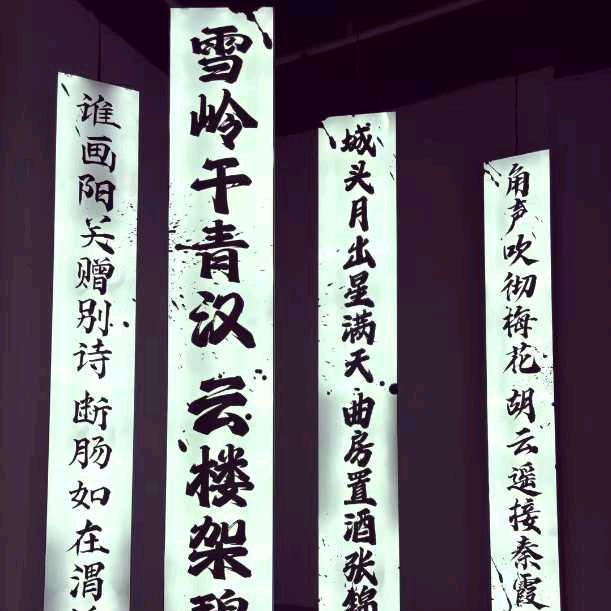 谁画阳关赠别诗 断肠如在渭
雪岭干青汉 云楼架碧
城头月出星满天 曲房置酒张锦
角声吹彻梅花 胡云遥接秦霞